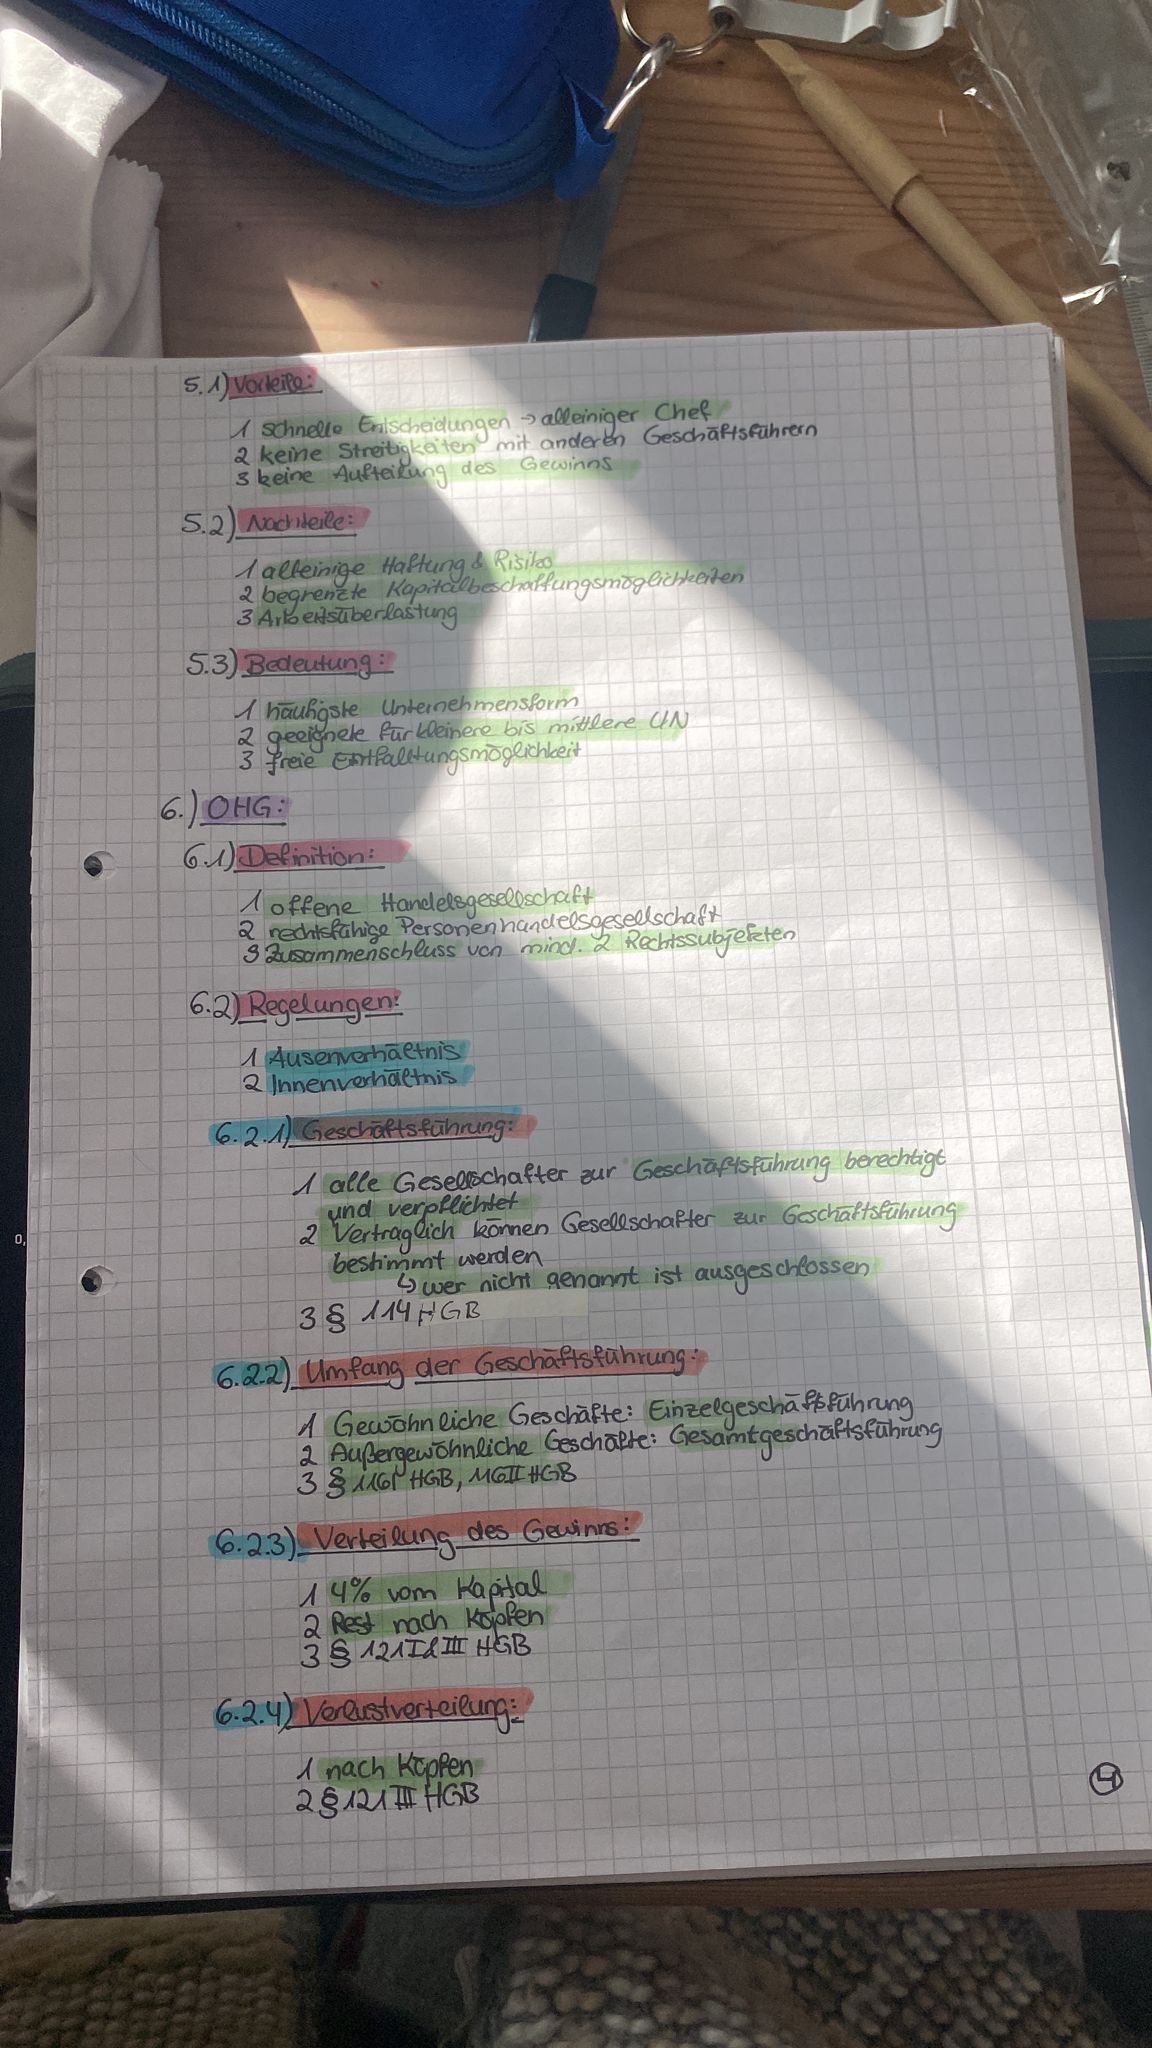 5.1) Vorteile:
1 schnelle Entscheidungen → alleiniger Chef
2 keine Streitigkeiten mit anderen Geschäftsführern
3 keine Aufteilung des Gewinns
5.2) Nachteile:
1 alleinige Haftung & Risiko
2 begrenzte Kapitalbeschaffungsmöglichkeiten
3 Arbeitsüberlastung
5.3) Bedeutung:
1 häufigste Unternehmensform
2 geeignete für kleinere bis mittlere UN
3 freie Entfaltungsmöglichkeit
6.) OHG:
6.1) Definition:
1 offene Handelsgesellschaft
2 rechtsfähige Personenhandelsgesellschaft
3 Zusammenschluss von mind. 2 Rechtssubjekten
6.2) Regelungen:
1 Ausenverhältnis
2 Innenverhältnis
6.2.1) Geschäftsführung:
1 alle Gesellschafter zur Geschäftsführung berechtigt
und verpflichtet
2 Vertraglich können Gesellschafter zur Geschäftsführung
bestimmt werden
↳ wer nicht genannt ist ausgeschlossen
3 § 114 HGB
6.2.2) Umfang der Geschäftsführung:
1 Gewöhnliche Geschäfte: Einzelgeschäftsführung
2 Außergewöhnliche Geschäfte: Gesamtgeschäftsführung
3 § 116I HGB, 116II HGB
6.2.3) Verteilung des Gewinns:
1 4% vom Kapital
2 Rest nach Köpfen
3 § 121 I & III HGB
6.2.4) Verlustverteilung:
1 nach Köpfen
2 § 121 III HGB
4